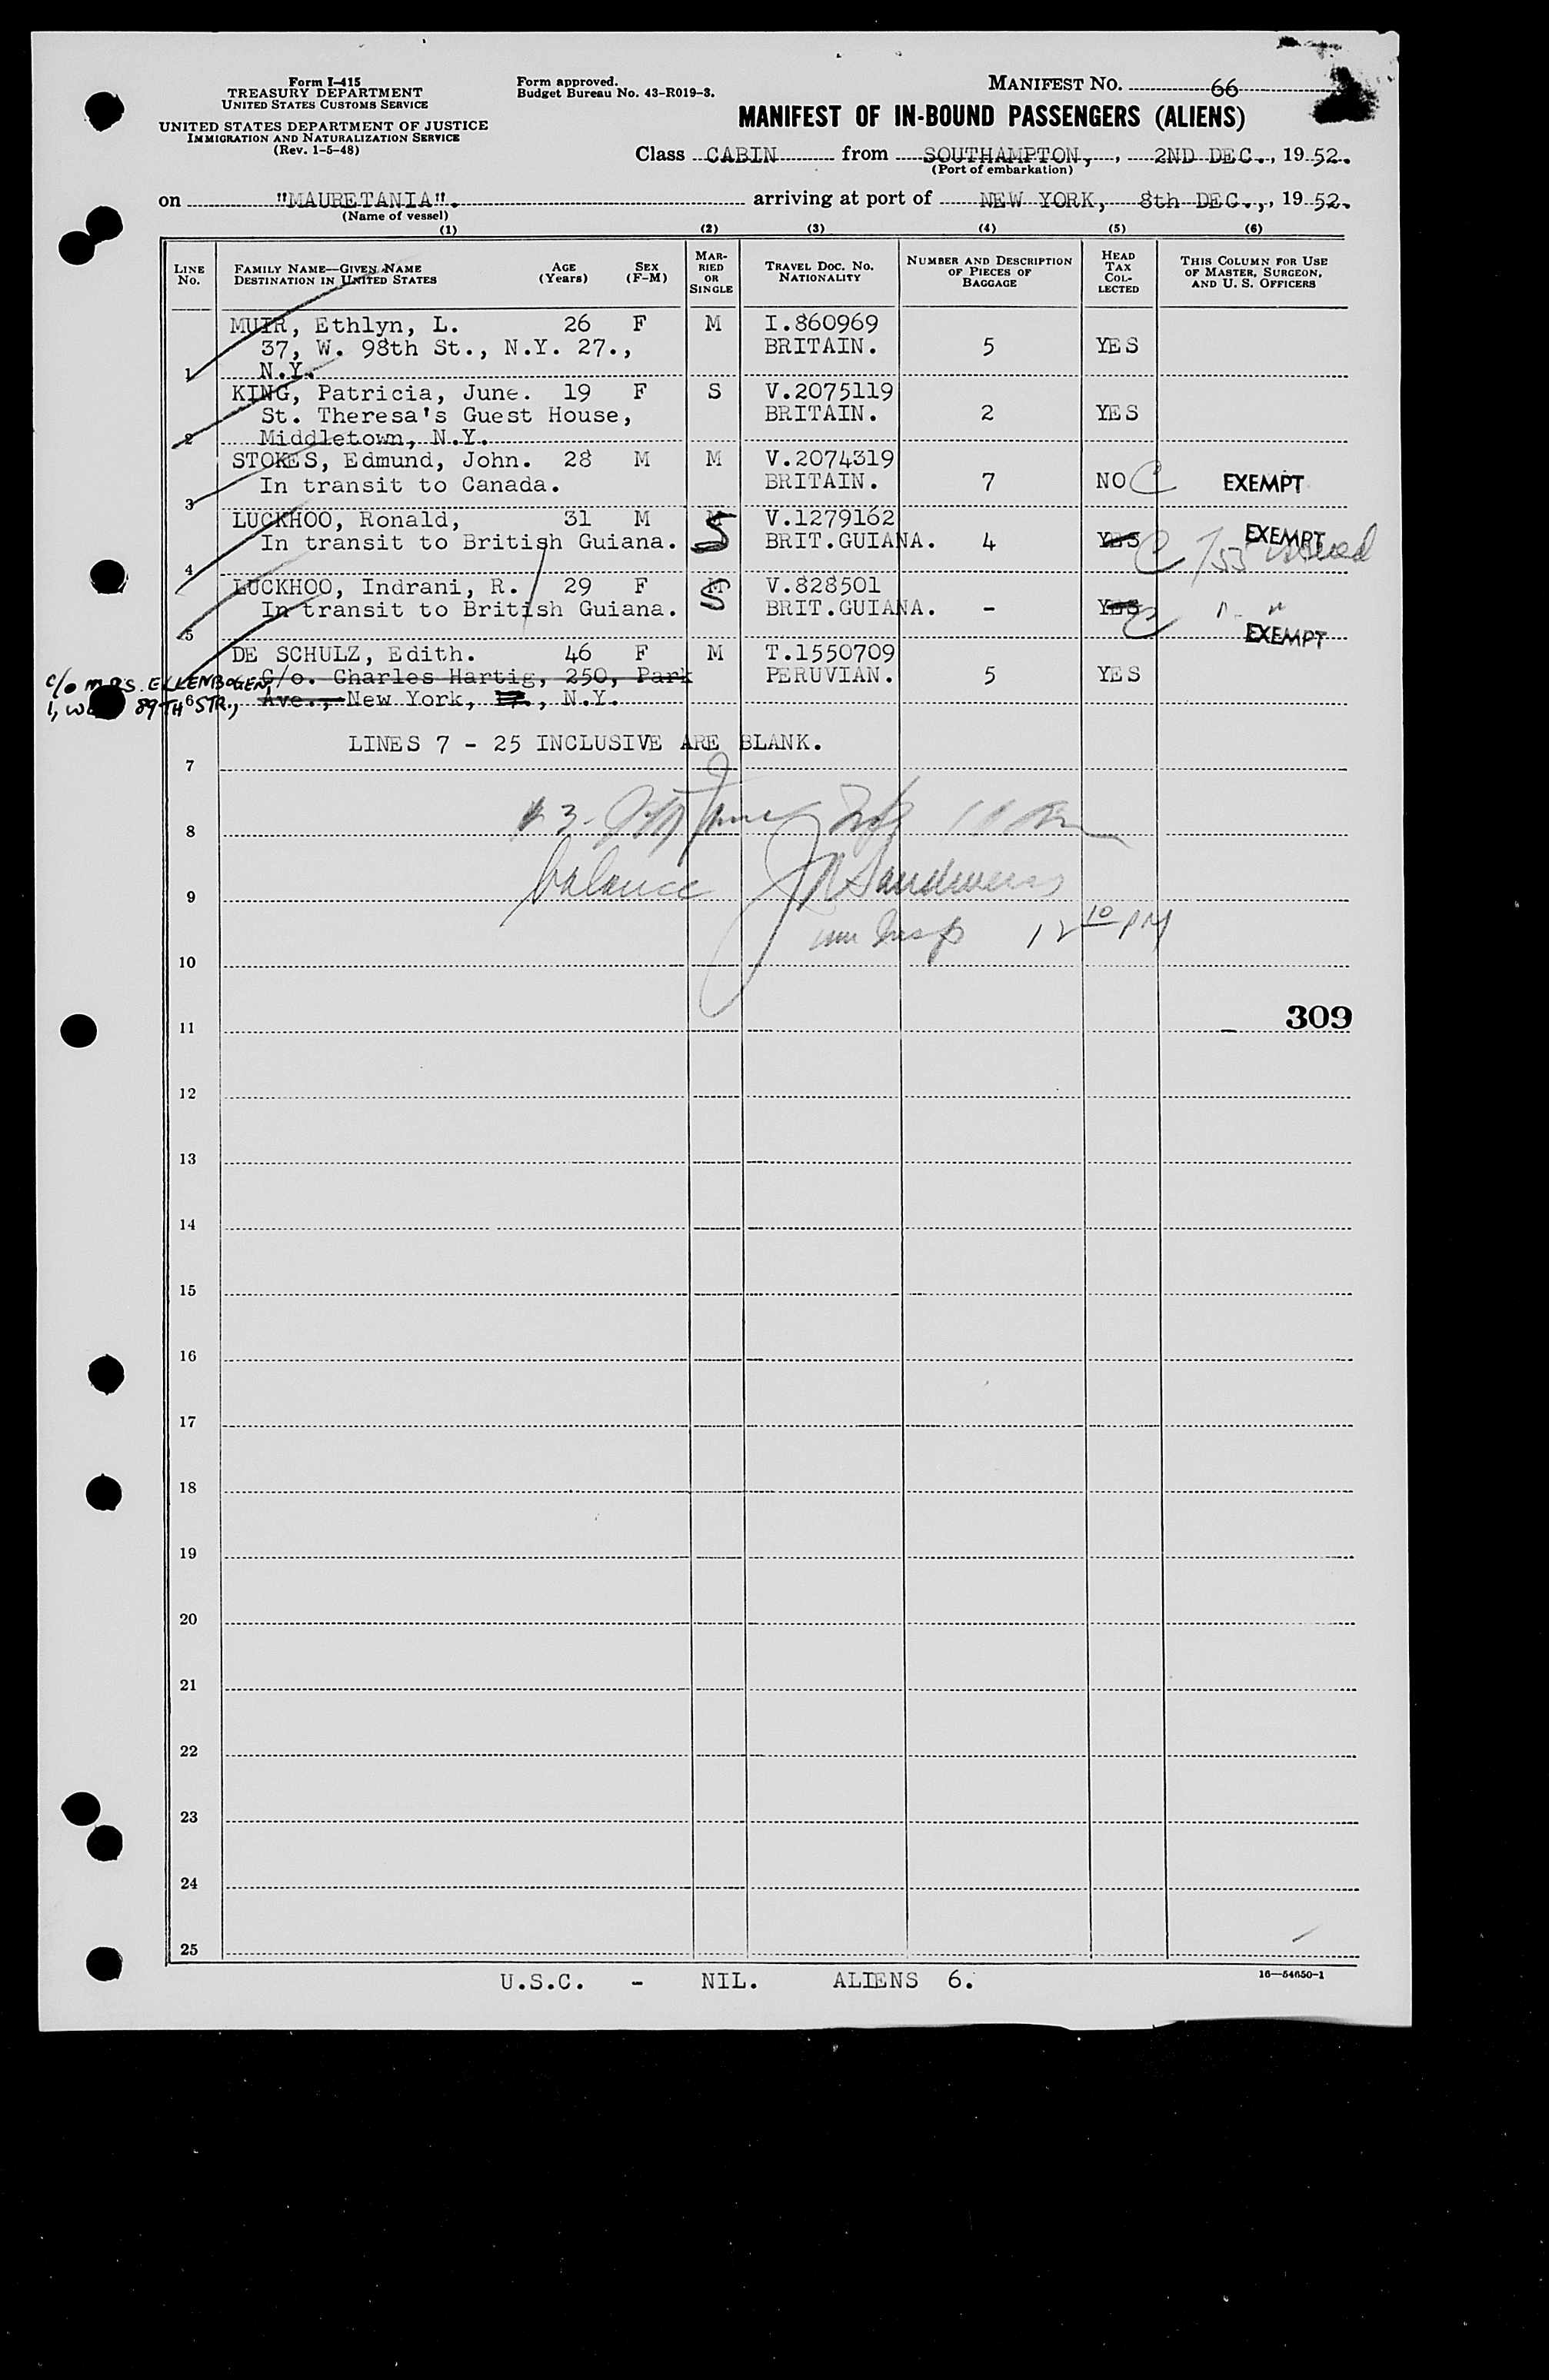 Form I-415
TREASURY DEPARTMENT
UNITED STATES CUSTOMS SERVICE
UNITED STATES DEPARTMENT OF JUSTICE
IMMIGRATION AND NATURALIZATION SERVICE
(Rev. 1-5-48)
Form approved.
Budget Bureau No. 43-R019-3.
MANIFEST NO. 66
MANIFEST OF IN-BOUND PASSENGERS (ALIENS)
Class CABIN from SOUTHAMPTON, , 2ND DEC., 1952.
(Port of embarkation)
on "MAURETANIA". arriving at port of NEW YORK, 8th DEC.,, 1952.
(Name of vessel)
(1) (2) (3) (4) (5) (6)
LINE No. FAMILY NAME—GIVEN NAME DESTINATION IN UNITED STATES AGE (Years) SEX (F-M) MARRIED OR SINGLE TRAVEL DOC. NO. NATIONALITY NUMBER AND DESCRIPTION OF PIECES OF BAGGAGE HEAD TAX COLLECTED THIS COLUMN FOR USE OF MASTER, SURGEON, AND U. S. OFFICERS
MUIR, Ethlyn, L. 26 F M I.860969
37, W. 98th St., N.Y. 27., BRITAIN. 5 YES
1 N.Y.
KING, Patricia, June. 19 F S V.2075119
St. Theresa's Guest House, BRITAIN. 2 YES
2 Middletown, N.Y.
STOKES, Edmund, John. 28 M M V.2074319
In transit to Canada. BRITAIN. 7 NO C EXEMPT
3
LUCKHOO, Ronald, 31 M S V.1279162
In transit to British Guiana. BRIT.GUIANA. 4 YES C EXEMPT
4
LUCKHOO, Indrani, R. 29 F S V.828501
In transit to British Guiana. BRIT.GUIANA. - YES C
5 EXEMPT
DE SCHULZ, Edith. 46 F M T.1550709
C/o MRS. ELLENBOGEN, C/o. Charles Hartig, 250, Park PERUVIAN. 5 YES
1, 89TH STR., 6 Ave., New York, , N.Y.
LINES 7 - 25 INCLUSIVE ARE BLANK.
7
8
balance
9
Imm Insp 12 10 PM
10
309
11
12
13
14
15
16
17
18
19
20
21
22
23
24
25
U.S.C. - NIL. ALIENS 6.
16—54650-1